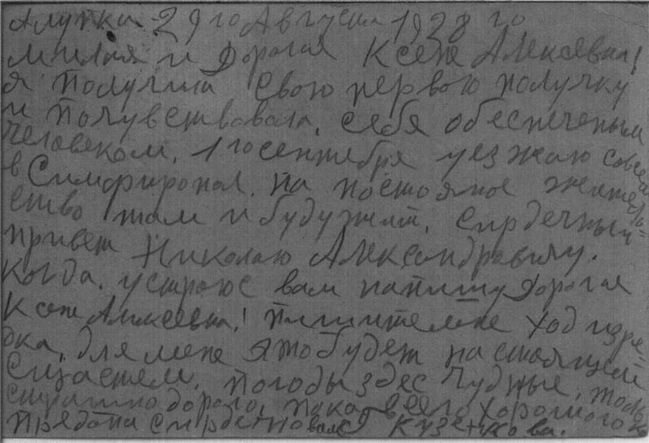 Алупка 29 го Августа 1928 го
милая и дорогая Ксене Алексевна!
я получила свою первою получку
и почувствовала, себя обеспеченым
человеком, 1 го сентебря уезжаю совсем
в Симфиропол, на постояное житель-
ство там и буду жит, сирдечный
привет Николаю Александравичу.
Когда, устроюс вам напишу дорогая
Ксене Алексевна! пишите мне ход изре-
дка, для мене это будет настоящей
сщастем, погоды здес чудные, только
страшно дорого, пока всего хорошого
Кузенкова.